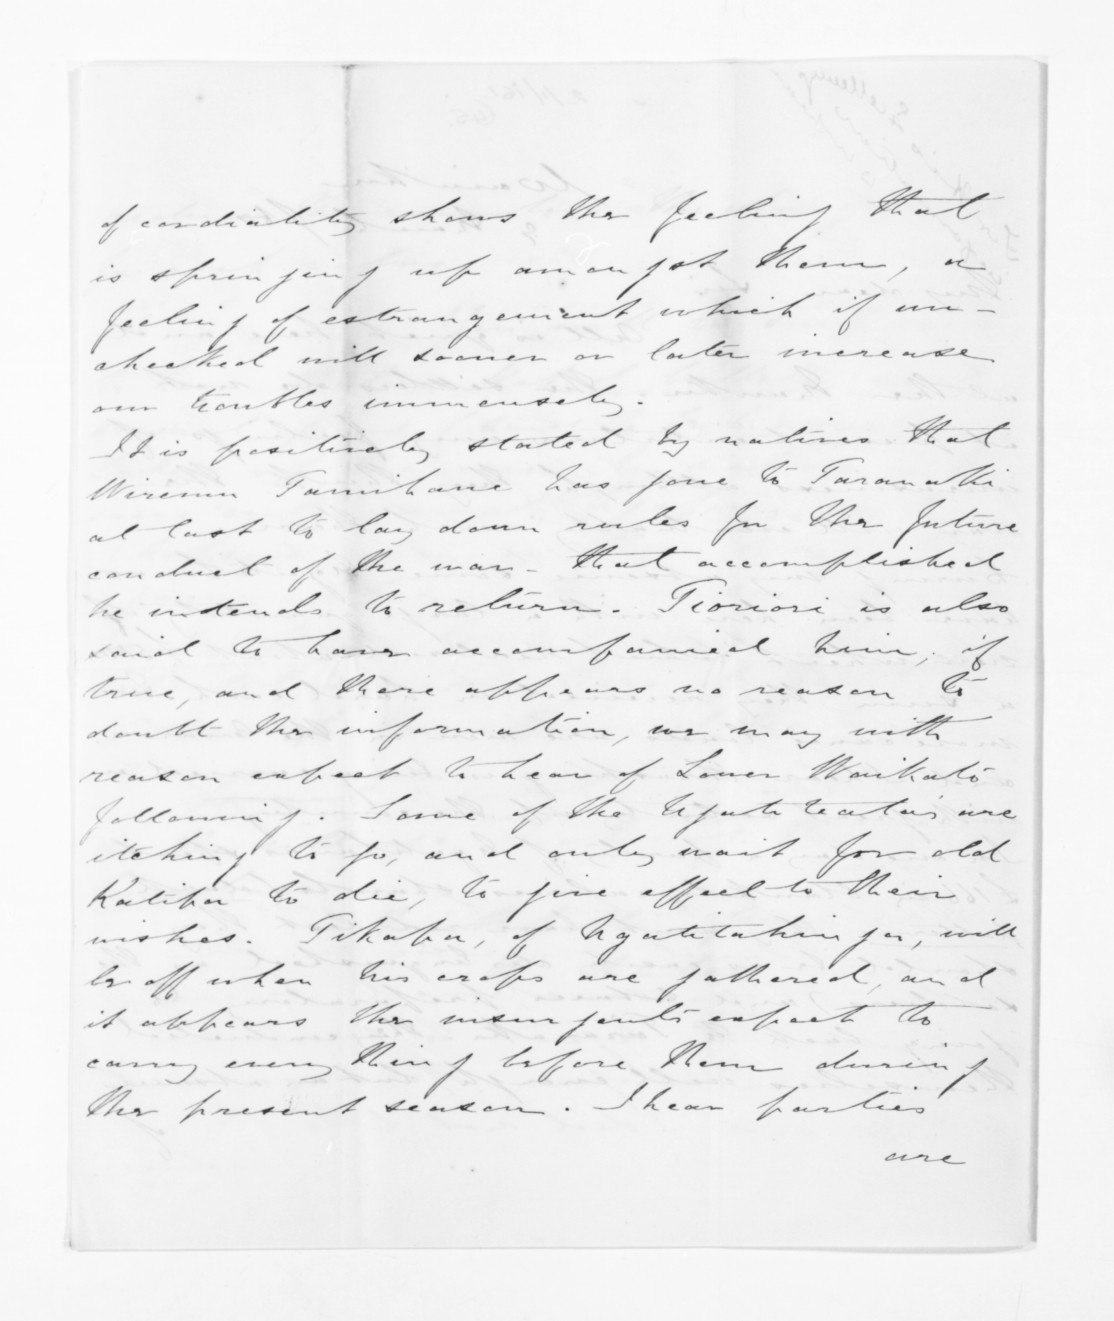 of cordiality shows the feeling that
is springing up amongst them, a
feeling of estrangement which if un-
checked will sooner or later increase
our troubles immensely.
It is positively stated by natives that
Wiremu Tamihana has gone to Taranaki
at last to lay down rules for the future
conduct of the war - that accomplished
he intends to return. Tioriori is also
said to have accompanied him; if
true, and there appears no reason to
doubt the information, we may with
reason expect to hear of Lower Waikato
following. Some of the Ngatiteatas are
itching to go, and only wait for old
Katipa to die, to give effect to their
wishes. Tikapa, of Ngatitahinga, will
be off when his crops are gathered, and
it appears the insurgents expect to
carry every thing before them during
the present season. I hear parties
are